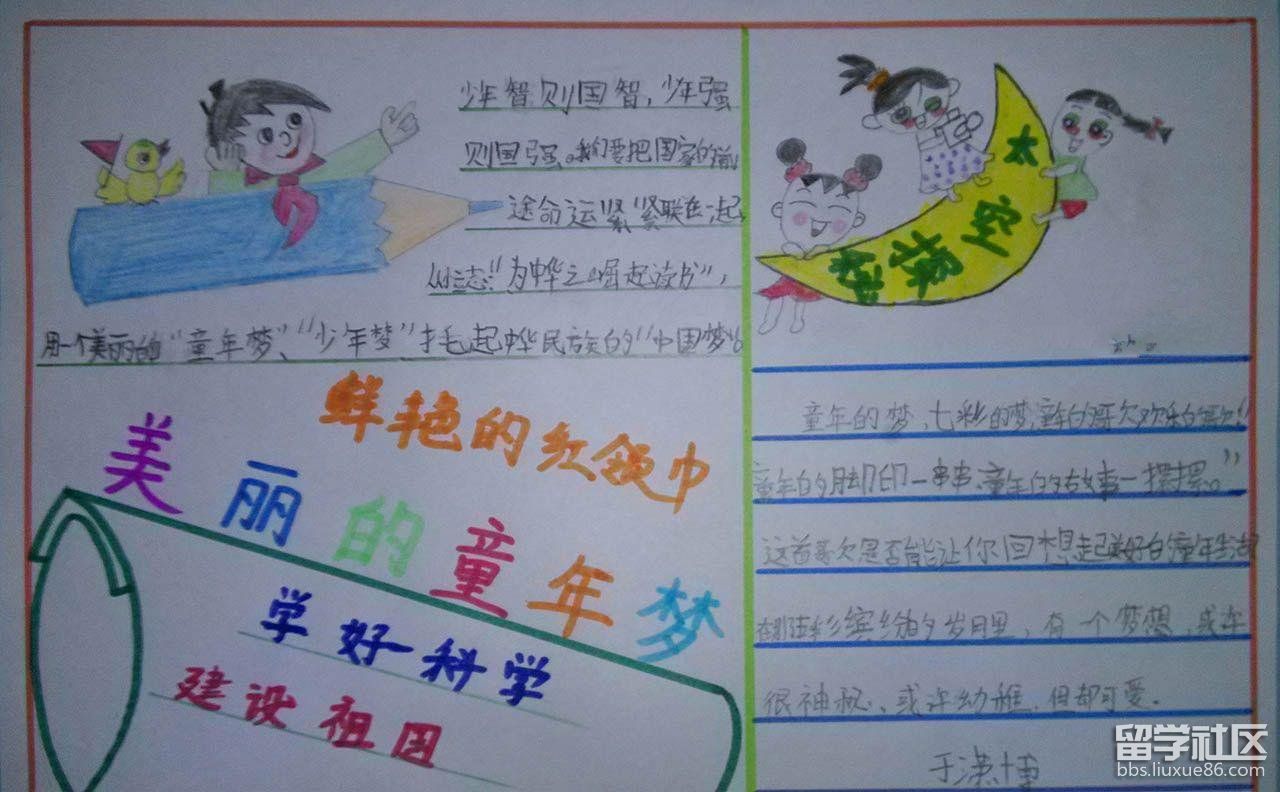 少年智则国智,少年强
则国强。我们要把国家的前
途命运"紧"紧联在一起,
从立志"为中华之崛起读书",
用一个美丽的"童年梦、"少年梦"托起中华民族的"中国梦"
鲜艳的红领巾
美丽的童年梦
学好科学
建设祖国
太空探
童年的梦,七彩的梦,童年的歌欢乐的歌
童年的脚印一串串、童年的故事一摞摞。"
这首歌是否能让你回想起美好的童年生活
在那五彩缤纷的岁月里,有一个梦想,或许
很神秘、或许幼稚,但却可爱。
于潇博
留学社区
bbs.liuxue86.com